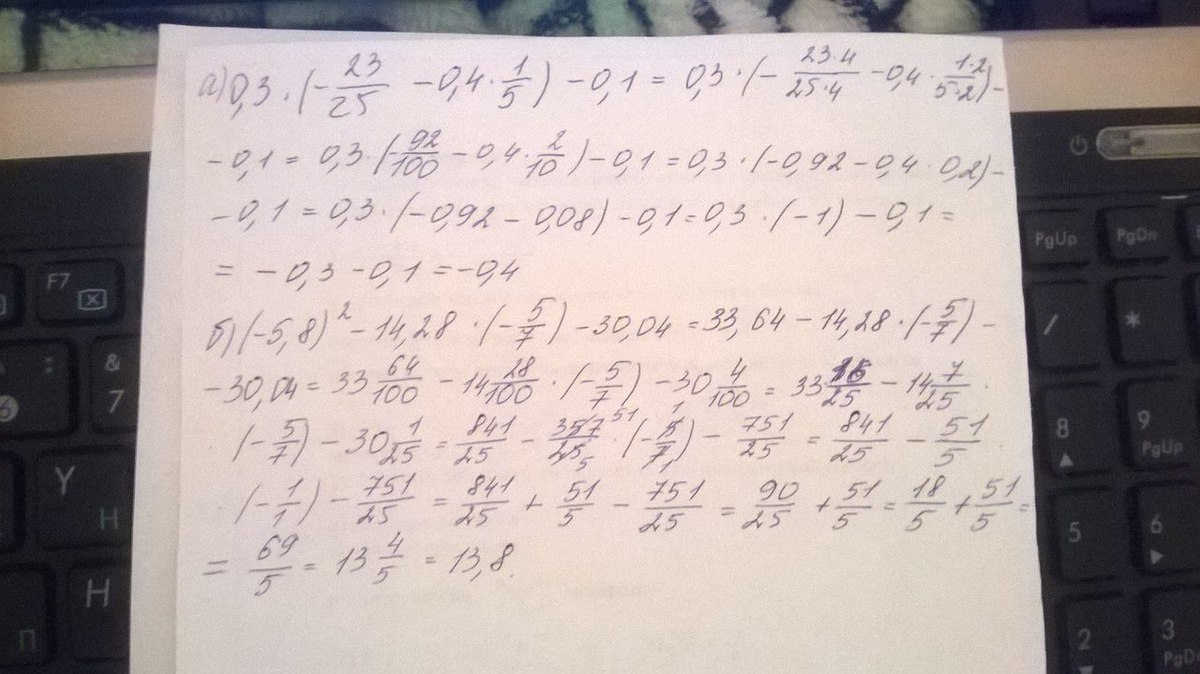 а) 0,3 · (- 23/25 - 0,4 · 1/5) - 0,1 = 0,3 · (- 23·4/25·4 - 0,4 · 1·2/5·2) -
- 0,1 = 0,3 · (- 92/100 - 0,4 · 2/10) - 0,1 = 0,3 · (-0,92 - 0,4 · 0,2) -
- 0,1 = 0,3 · (-0,92 - 0,08) - 0,1 = 0,3 · (-1) - 0,1 =
= - 0,3 - 0,1 = -0,4
б) (-5,8)² - 14,28 · (- 5/7) - 30,04 = 33,64 - 14,28 · (- 5/7) -
- 30,04 = 33 64/100 - 14 28/100 · (- 5/7) - 30 4/100 = 33 16/25 - 14 7/25 ·
· (- 5/7) - 30 1/25 = 841/25 - 357 51/25 5 · (- 5 1/7 1) - 751/25 = 841/25 - 51/5
· (- 1/1) - 751/25 = 841/25 + 51/5 - 751/25 = 90/25 + 51/5 = 18/5 + 51/5 =
= 69/5 = 13 4/5 = 13,8.
F7
&
7
:
6
Y
Н
H
П
PgUp
PgDn
/
*
8
9
PgUp
5
6
2
3
PgDn